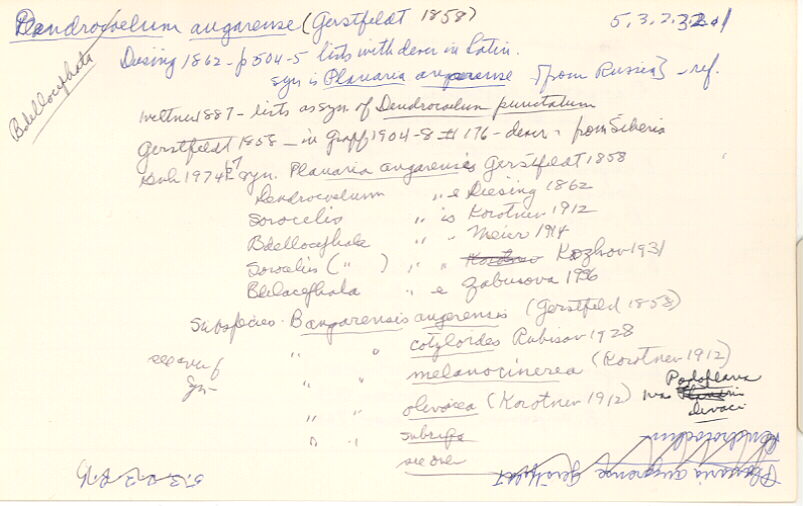 Dendrocoelum angarense (Gerstfeldt 1858)
5.3.2.32.1
Bdellocephala
Diesing 1862 - p504-5 lists with descr in Latin.
syn is Planaria angarense [from Russia] - ref.
Weltner 1887 - lists as syn. of Dendrocoelum punctatum
Gerstfeldt 1858 - in Graff 1904-8 # 176 - descr - from Siberia
1974 syn. Planaria angarensis Gerstfeldt 1858
Dendrocoelum " e Diesing 1862
Sorocelis " is Korotnev 1912
Bdellocephala " " Meier 1914
Sorocelis ( " ) " " Korotnev Kozhov 1931
Bdellocephala " e Zabusova 1936
Subspecies - B angarensis angarensis (Gerstfeld 1858)
" " cotyloides Rubisov 1928
see over for
syn-
" " melanocinerea (Korotnev 1912)
" " olivacea (Korotnev 1912) Podoplana
" " subrufa
see over
Planaria angarense Gerstfeldt
Dendrocoelum
5.3.2.2.